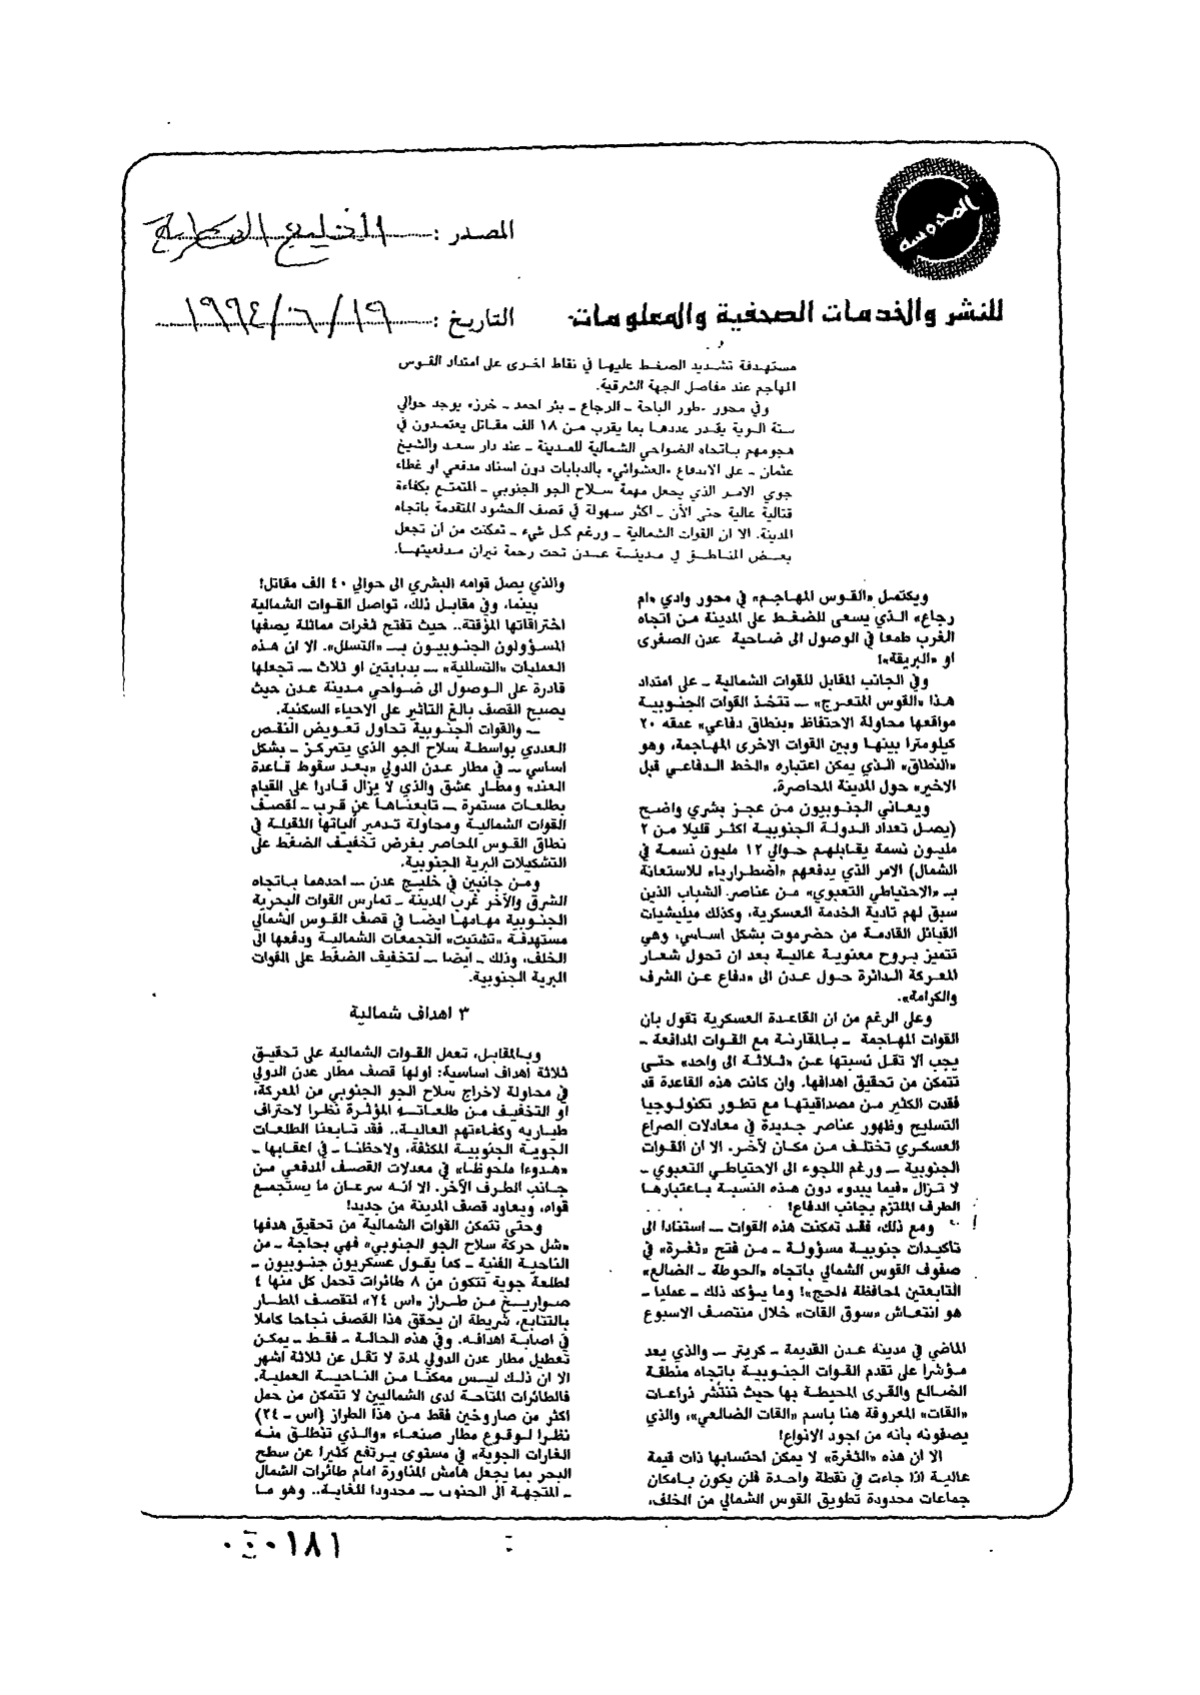 المدوسه
المصدر : الخليج
للنشر والخدمات الصحفية والمعلومات
التاريخ : ١٩ / ٦ / ١٩٩٤
مستهدفة تشديد الضغط عليها في نقاط اخرى على امتداد القوس
المهاجم عند مفاصل الجهة الشرقية.
وفي محور «طور الباحة ـ الرجاع ـ بئر احمد ـ خرز» يوجد حوالي
ستة الوية يقدر عددها بما يقرب من ١٨ الف مقاتل يعتمدون في
هجومهم باتجاه الضواحي الشمالية للمدينة ـ عند دار سعد والشيخ
عثمان ـ على الاندفاع «العشوائي» بالدبابات دون اسناد مدفعي او غطاء
جوي الامر الذي يجعل مهمة سلاح الجو الجنوبي ـ المتمتع بكفاءة
قتالية عالية حتى الأن ـ اكثر سهولة في قصف الحشود المتقدمة باتجاه
المدينة. الا ان القوات الشمالية ـ ورغم كل شيء ـ تمكنت من ان تجعل
بعض المناطق في مدينة عدن تحت رحمة نيران مدفعيتها.
ويكتمل «القوس المهاجم» في محور وادي «ام
رجاع» الذي يسعى للضغط على المدينة من اتجاه
الغرب طمعا في الوصول الى ضاحية عدن الصغرى
او «البريقة»!
وفي الجانب المقابل للقوات الشمالية ـ على امتداد
هذا «القوس المتعرج» ـ تتخذ القوات الجنوبية
مواقعها محاولة الاحتفاظ «بنطاق دفاعي» عمقه ٢٠
كيلومترا بينها وبين القوات الاخرى المهاجمة، وهو
«النطاق» الذي يمكن اعتباره «الخط الدفاعي قبل
الاخير» حول المدينة المحاصرة.
ويعاني الجنوبيون من عجز بشري واضح
(يصل تعداد الدولة الجنوبية اكثر قليلا من ٢
مليون نسمة يقابلهم حوالي ١٢ مليون نسمة في
الشمال) الامر الذي يدفعهم «اضطراريا» للاستعانة
بـ «الاحتياطي التعبوي» من عناصر الشباب الذين
سبق لهم تادية الخدمة العسكرية، وكذلك ميليشيات
القبائل القادمة من حضرموت بشكل اساسي، وهي
تتميز بروح معنوية عالية بعد ان تحول شعار
المعركة الدائرة حول عدن الى «دفاع عن الشرف
والكرامة».
وعلى الرغم من ان القاعدة العسكرية تقول بان
القوات المهاجمة ـ بالمقارنة مع القوات المدافعة ـ
يجب الا تقل نسبتها عن «ثلاثة الى واحد» حتى
تتمكن من تحقيق اهدافها. وان كانت هذه القاعدة قد
فقدت الكثير من مصداقيتها مع تطور تكنولوجيا
التسليح وظهور عناصر جديدة في معادلات الصراع
العسكري تختلف من مكان لآخر. الا ان القوات
الجنوبية ـ ورغم اللجوء الى الاحتياطي التعبوي ـ
لا تزال «فيما يبدو» دون هذه النسبة باعتبارها
الطرف الملتزم بجانب الدفاع!
ومع ذلك، فقد تمكنت هذه القوات ـ استنادا الى
تاكيدات جنوبية مسؤولة ـ من فتح «ثغرة» في
صفوف القوس الشمالي باتجاه «الحوطة ـ الضالع»
التابعتين لمحافظة «لحج»! وما يؤكد ذلك ـ عمليا ـ
هو انتعاش «سوق القات» خلال منتصف الاسبوع
الماضي في مدينة عدن القديمة ـ كريتر ـ والذي يعد
مؤشرا على تقدم القوات الجنوبية باتجاه منطقة
الضالع والقرى المحيطة بها حيث تنتشر زراعات
«القات» المعروفة هنا باسم «القات الضالعي»، والذي
يصفونه بانه من اجود الانواع!
الا ان هذه «الثغرة» لا يمكن احتسابها ذات قيمة
عالية اذا جاءت في نقطة واحدة فلن يكون بامكان
جماعات محدودة تطويق القوس الشمالي من الخلف،
والذي يصل قوامه البشري الى حوالي ٤٠ الف مقاتل!
بينما، وفي مقابل ذلك، تواصل القوات الشمالية
اختراقاتها المؤقتة.. حيث تفتح ثغرات مماثلة يصفها
المسؤولون الجنوبيون بـ «التسلل». الا ان هذه
العمليات «التسللية» ـ بدبابتين او ثلاث ـ تجعلها
قادرة على الوصول الى ضواحي مدينة عدن حيث
يصبح القصف بالغ التاثير على الاحياء السكنية.
ـ والقوات الجنوبية تحاول تعويض النقص
العددي بواسطة سلاح الجو الذي يتمركز ـ بشكل
اساسي ـ في مطار عدن الدولي «بعد سقوط قاعدة
العند» ومطار عشق والذي لا يزال قادرا على القيام
بطلعات مستمرة ـ تابعناها عن قرب ـ لقصف
القوات الشمالية ومحاولة تدمير آلياتها الثقيلة في
نطاق القوس المحاصر بغرض تخفيف الضغط على
التشكيلات البرية الجنوبية.
ومن جانبين في خليج عدن ـ احدهما باتجاه
الشرق والآخر غرب المدينة ـ تمارس القوات البحرية
الجنوبية مهامها ايضا في قصف القوس الشمالي
مستهدفة «تشتيت» التجمعات الشمالية ودفعها الى
الخلف، وذلك ـ ايضا ـ لتخفيف الضغط على القوات
البرية الجنوبية.
٣ اهداف شمالية
وبالمقابل، تعمل القوات الشمالية على تحقيق
ثلاثة أهداف اساسية: أولها قصف مطار عدن الدولي
في محاولة لاخراج سلاح الجو الجنوبي من المعركة،
او التخفيف من طلعاته المؤثرة نظرا لاحتراف
طياريه وكفاءتهم العالية.. فقد تابعنا الطلعات
الجوية الجنوبية المكثفة، ولاحظنا ـ في اعقابها ـ
«هدوءا ملحوظا» في معدلات القصف المدفعي من
جانب الطرف الآخر. الا انه سرعان ما يستجمع
قواه، ويعاود قصف المدينة من جديد!
وحتى تتمكن القوات الشمالية من تحقيق هدفها
«شل حركة سلاح الجو الجنوبي» فهي بحاجة ـ من
الناحية الفنية ـ كما يقول عسكريون جنوبيون ـ
لطلعة جوية تتكون من ٨ طائرات تحمل كل منها ٤
صواريخ من طراز «اس ٢٤» لتقصف المطار
بالتتابع، شريطة ان يحقق هذا القصف نجاحا كاملا
في اصابة اهدافه. وفي هذه الحالة ـ فقط ـ يمكن
تعطيل مطار عدن الدولي لمدة لا تقل عن ثلاثة اشهر
الا ان ذلك ليس ممكنا من الناحية العملية.
فالطائرات المتاحة لدى الشماليين لا تتمكن من حمل
اكثر من صاروخين فقط من هذا الطراز (اس ـ ٢٤)
نظرا لوقوع مطار صنعاء «والذي تنطلق منه
الغارات الجوية» في مستوى يرتفع كثيرا عن سطح
البحر بما يجعل هامش المناورة امام طائرات الشمال
ـ المتجهة الى الجنوب ـ محدودا للغاية.. وهو ما
٠٠٠١٨١